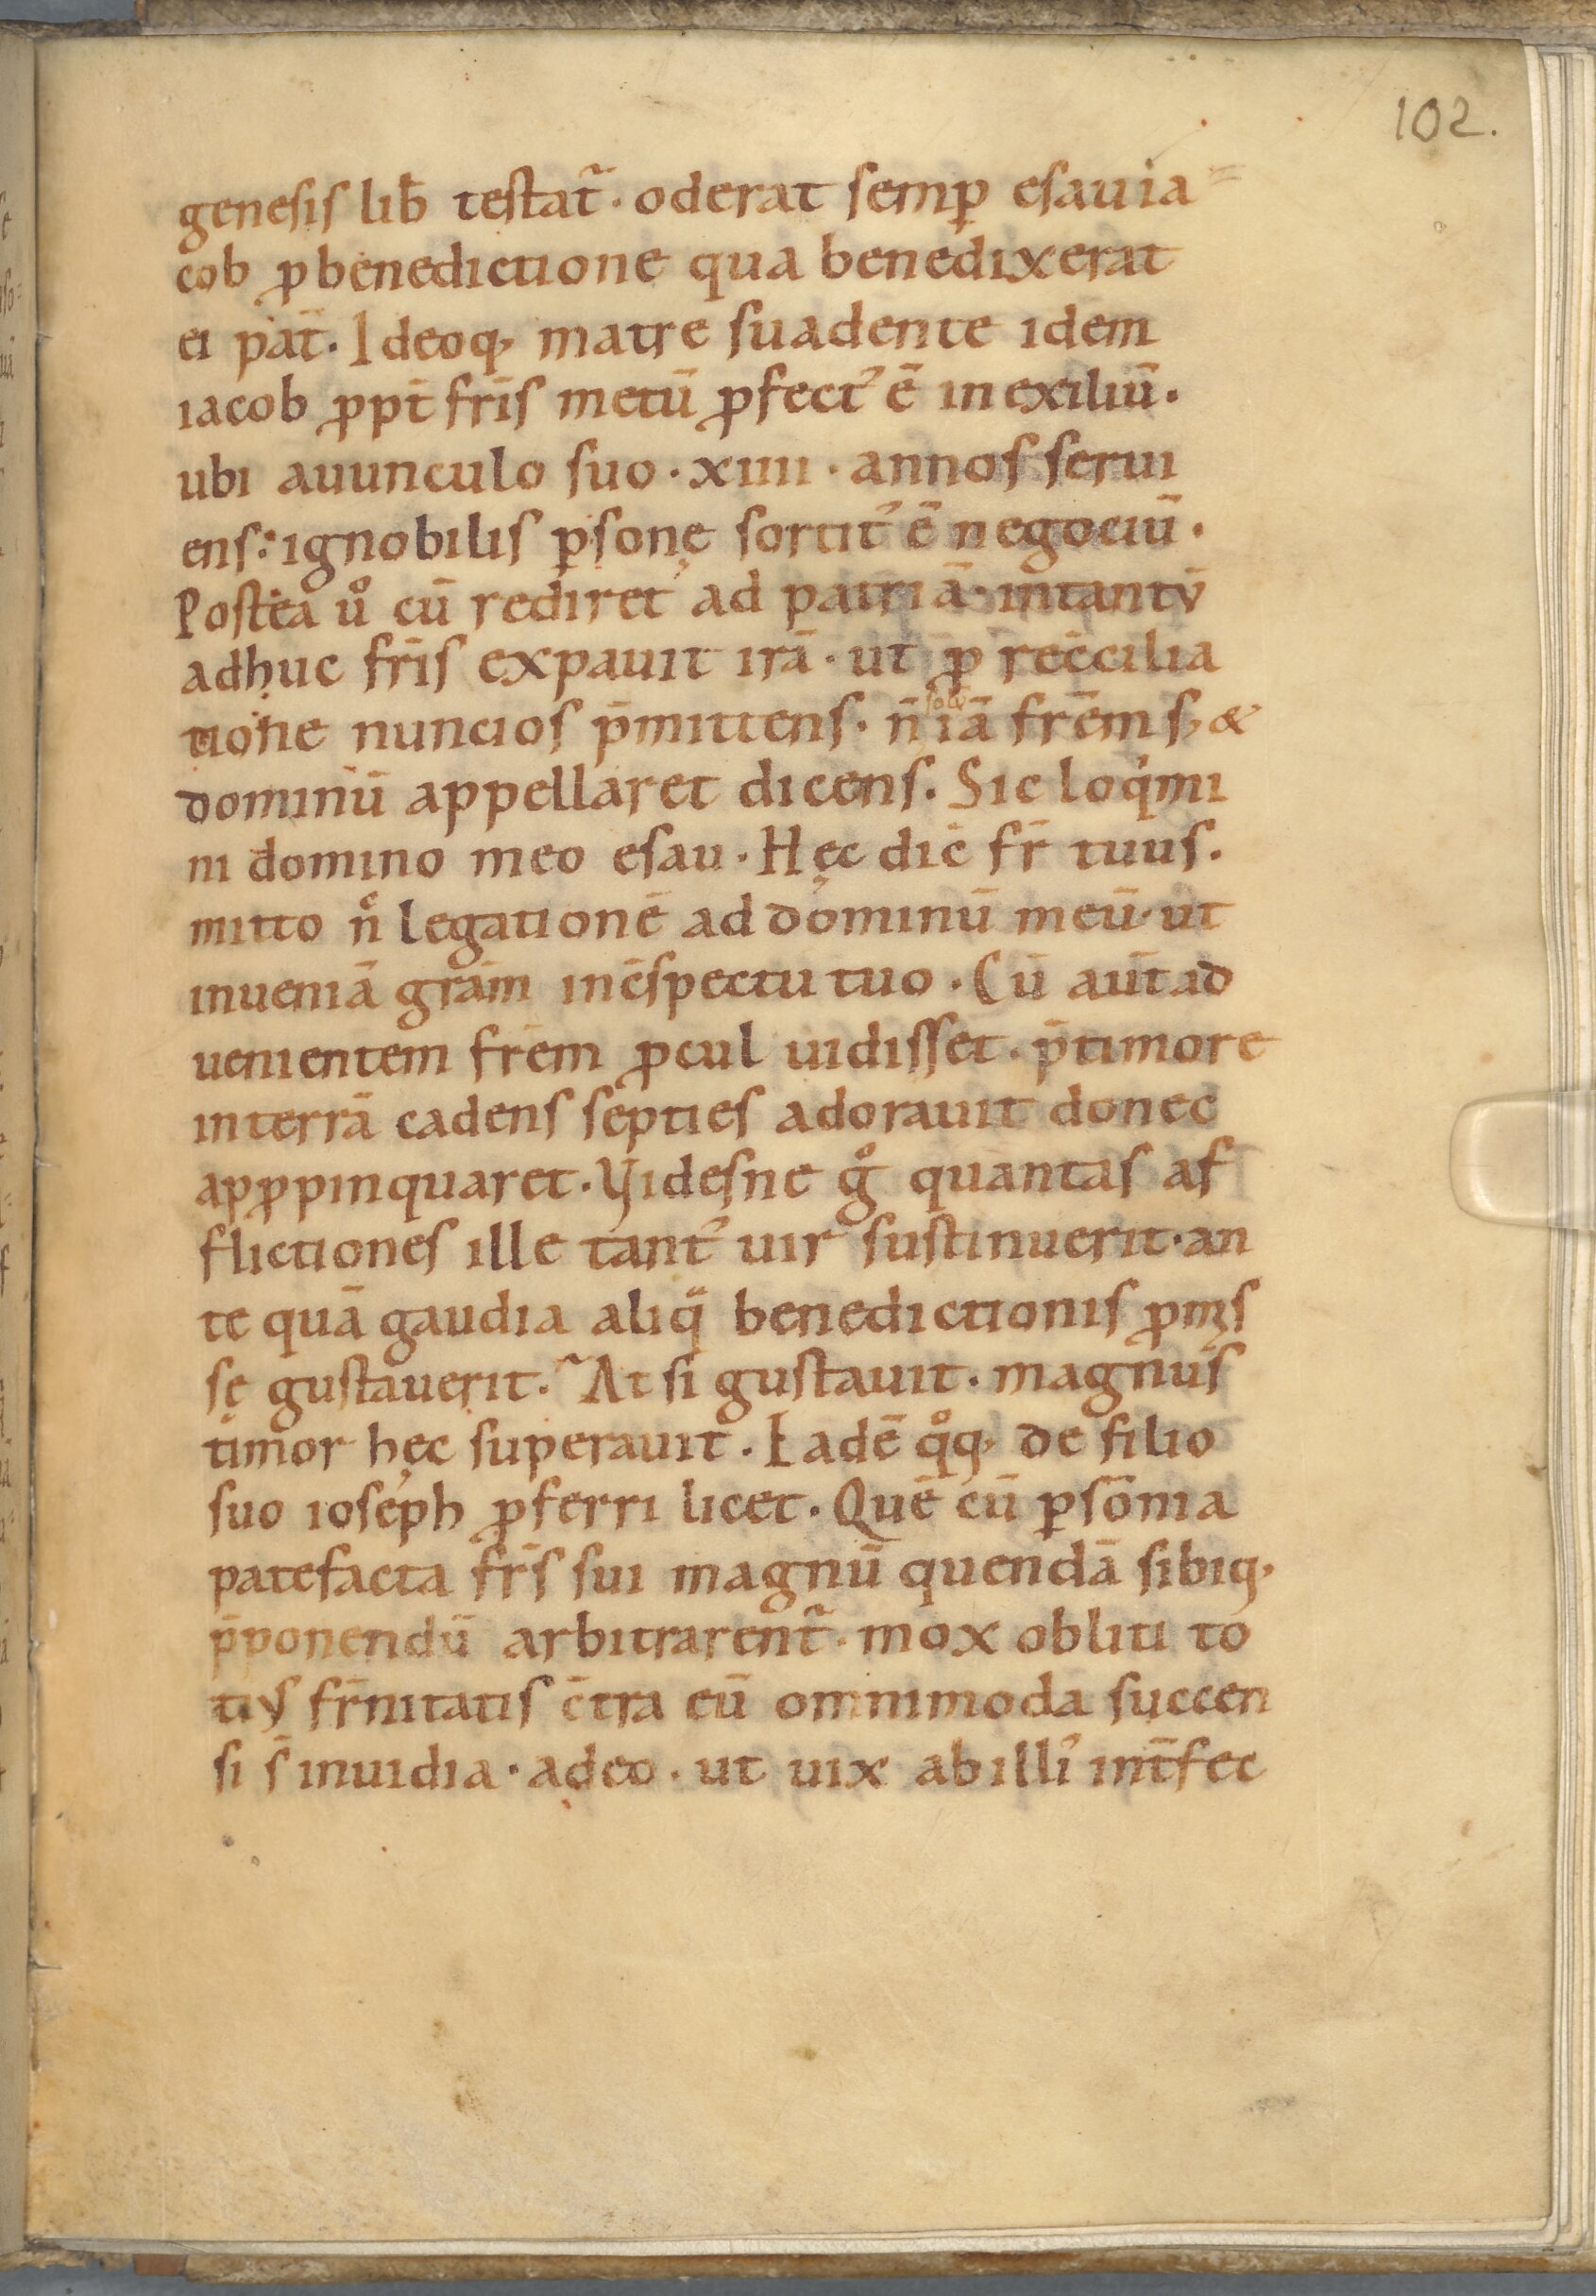 102.
genesis lib̄ testat᷑. oderat semꝑ esau ia=
cob ꝓ benedictione qua benedixerat
ei pat̄. Ideoq, matre suadente idem
iacob ꝓpt̄ fr̄is metū ꝓfect᾽ ē in exiliū.
ubi auunculo suo · xiiii · annos serui
ens: ignobilis ꝑsonę sortit᾽ ē negociū.
Postea uͦ cū rediret ad patriā· intantū
adhuc fr̄is expauit irā · ut ꝓ rec̄cilia
tione nuncios p̄mittens. n̄ iā fr̄em s, &
dominū appellaret dicens. Sic loqͥmi
ni domino meo esau. Hęc dic̄ fr̄ tuus.
mitto nͨ legationē ad dominū meū· ut
inueniā gr̄am inc̄spectu tuo. Cū aut̄ ad
uenientem fr̄em ꝓcul uidisset. p̄ timore
in terrā cadens septies adorauit donec
apꝓpinquaret. Videsne gͦ quantas af
flictiones ille tant᾽ uir sustinuerit· an
te quā gaudia aliqͣ benedictionis ꝓmis
sę gustauerit? At si gustauit. magnus
timor hęc superauit. Eadē qͦq, de filio
suo ioseph ꝓferri licet. Quē cū ꝑ somnia
patefacta fr̄is sui magnū quendā sibiq,
p̄ponendū arbitrarent᷑. mox obliti to
tius fr̄nitatis c̄tra eū omnimoda succen
si s̄ inuidia · adeo. ut uix ab illi᾽ int̄fec